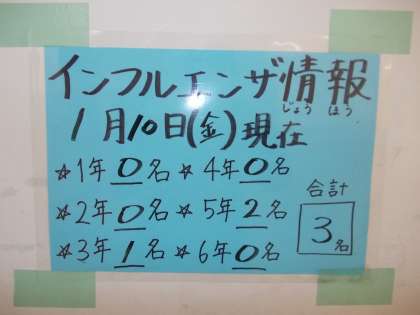 インフルエンザ情報
じょう ほう
1月10日(金)現在
☆1年0名 ☆4年0名
☆2年0名 ☆5年2名
☆3年1名 ☆6年0名
合計
3名